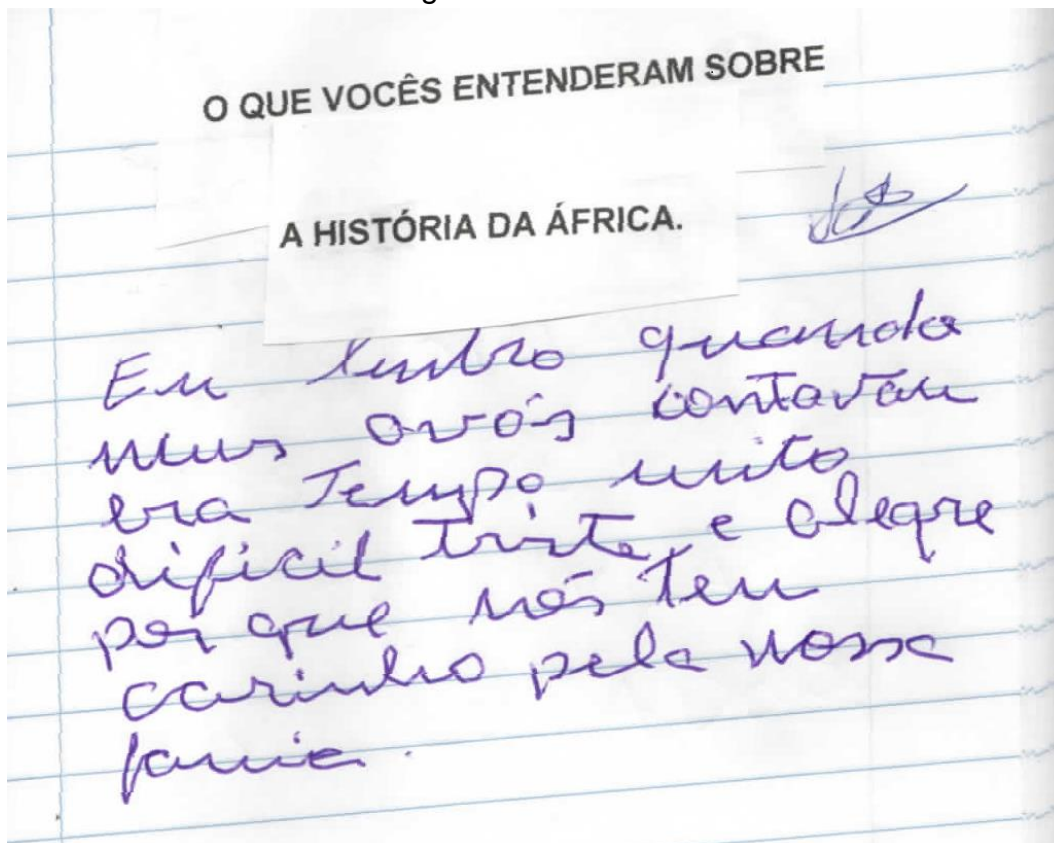 O QUE VOCÊS ENTENDERAM SOBRE
A HISTÓRIA DA ÁFRICA.
Eu lembro quando
meus avós contavam
era Tempo muito
dificil triste, e alegre
por que nós tem
carinho pela nossa
famia.